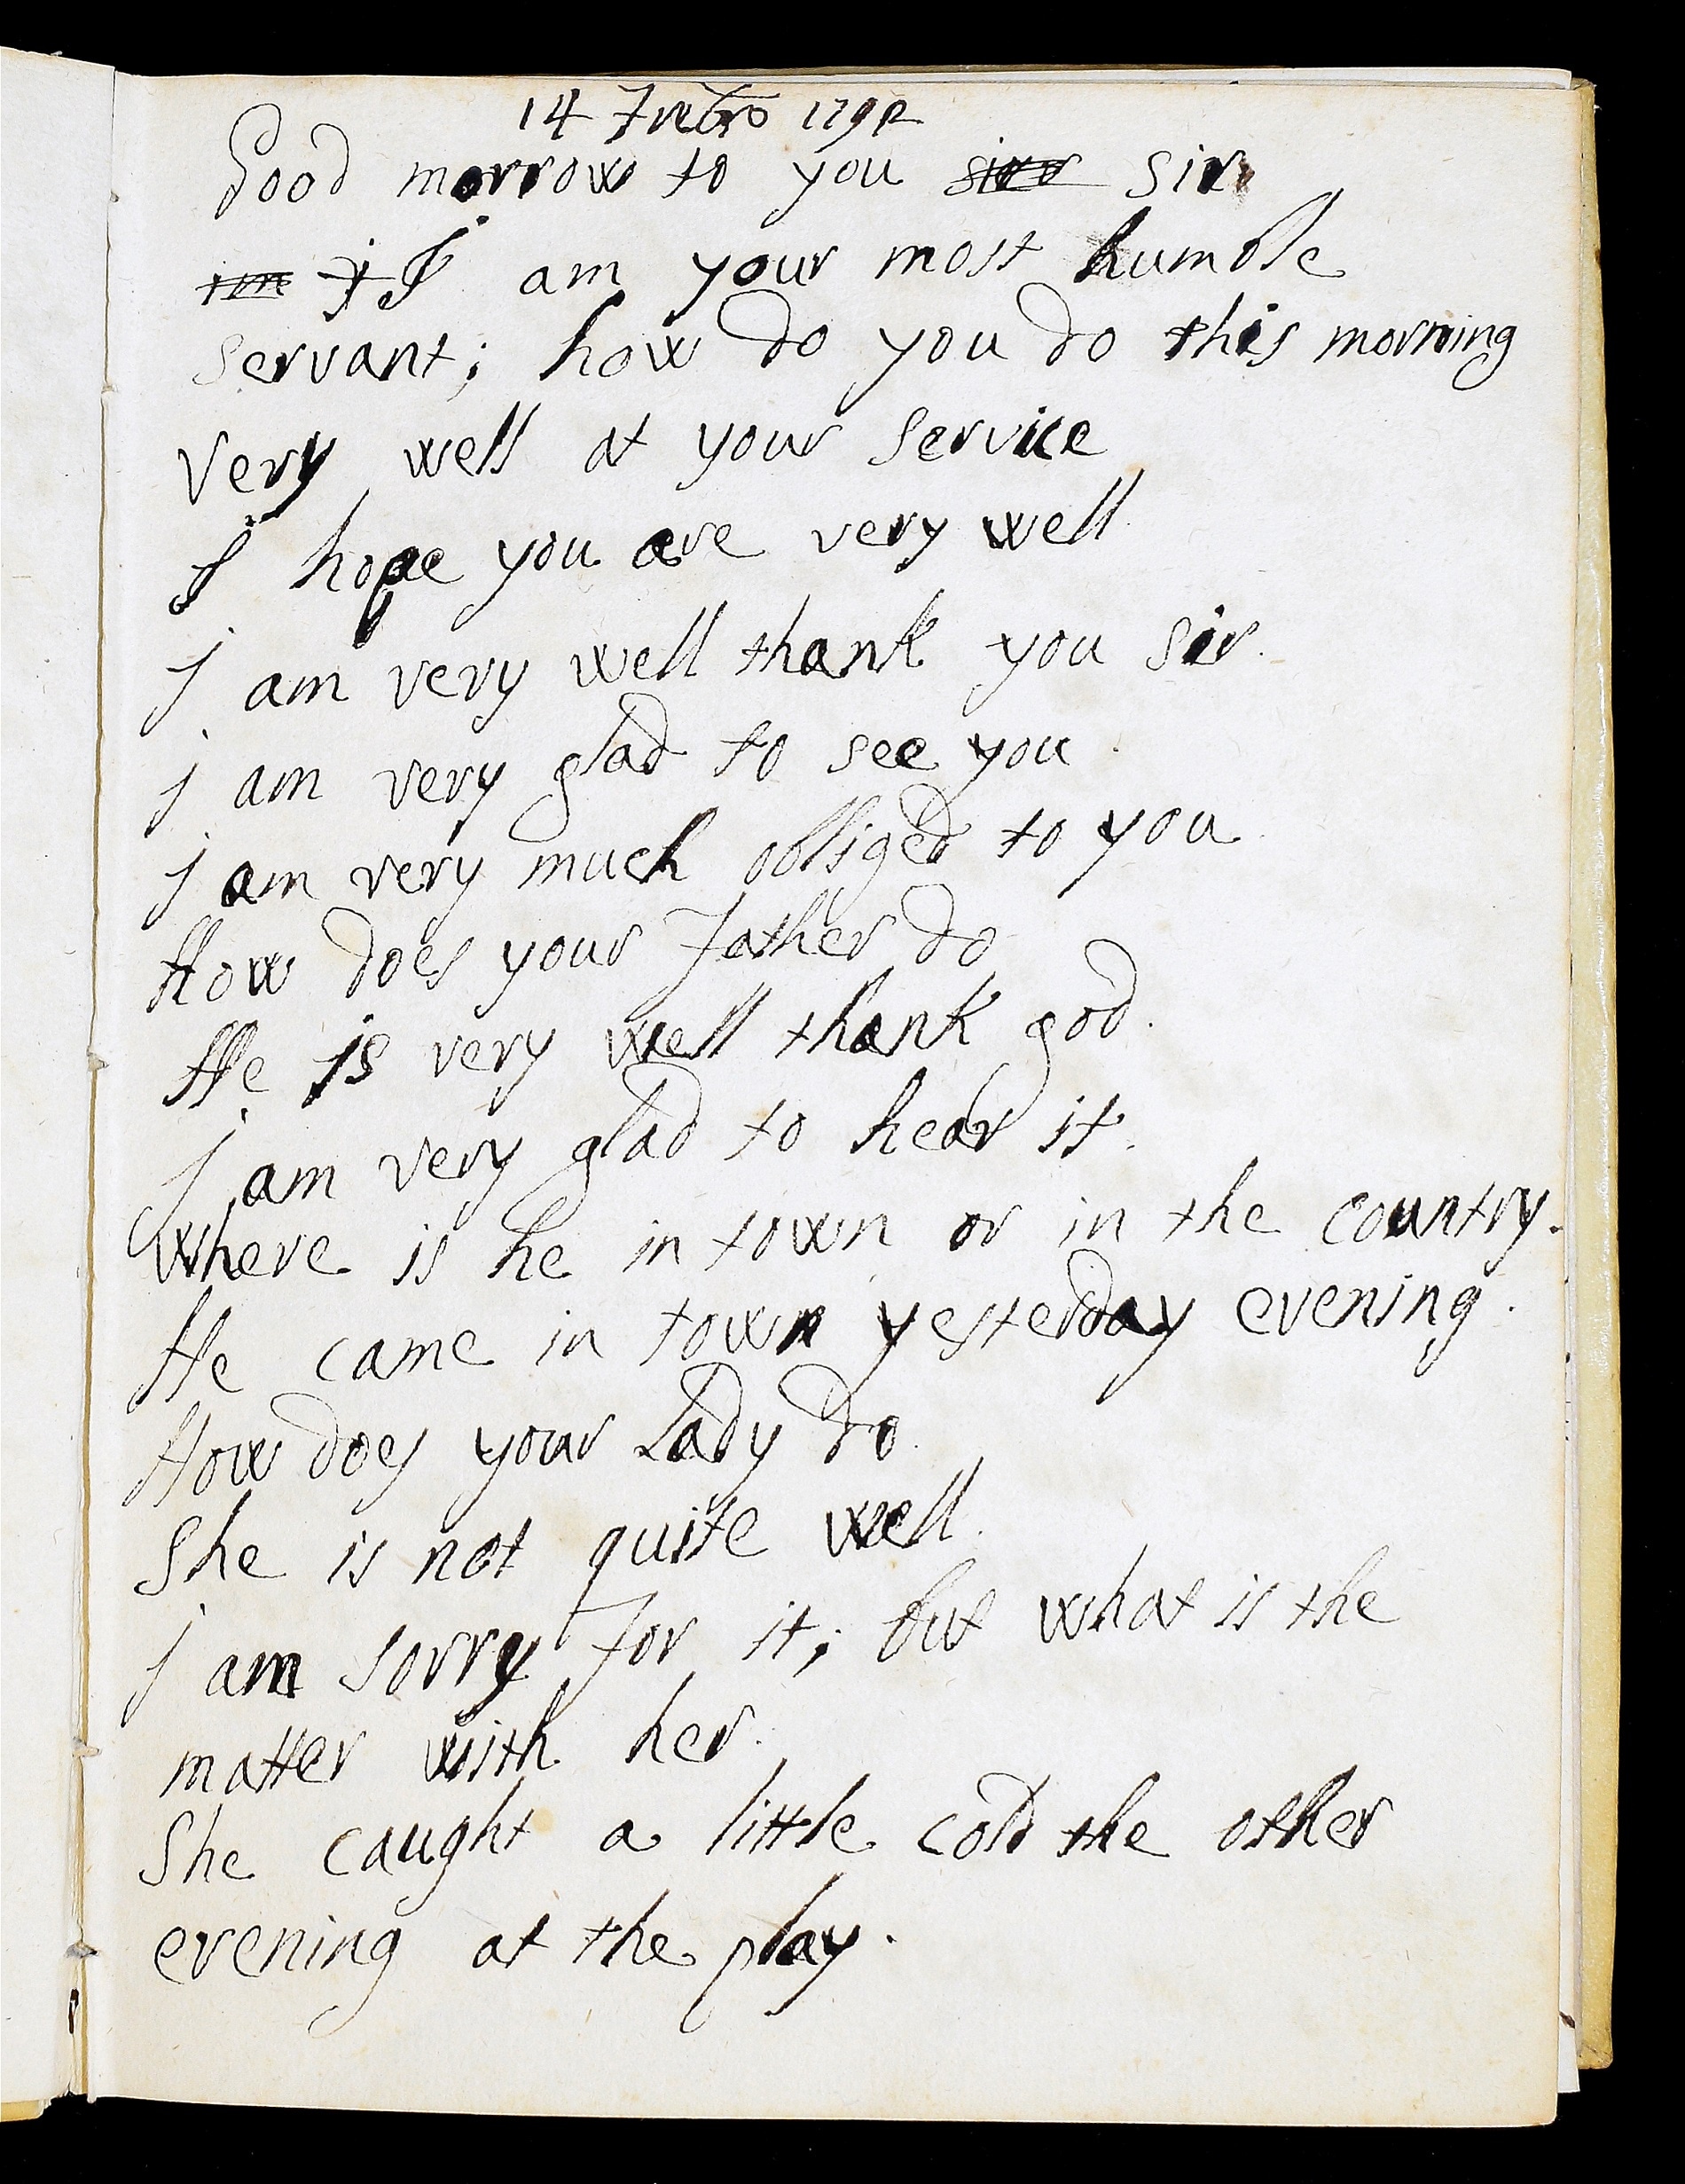 14 Frebro 1792
Good morrow to you sir
I am your most humble
servant; how do you do this morning
very well at your service
I hope you are very well
j am very well thank you sir.
j am very glad to see you.
j am very much obliged to you.
How does your Father do
He is very well thank god.
j am very glad to hear it.
where is he in town or in the country.
He came in town yesterday evening.
How does your Lady do.
She is not quite well.
j am sorry for it; but what is the
matter with her.
She caught a little cold the other
evening at the play.